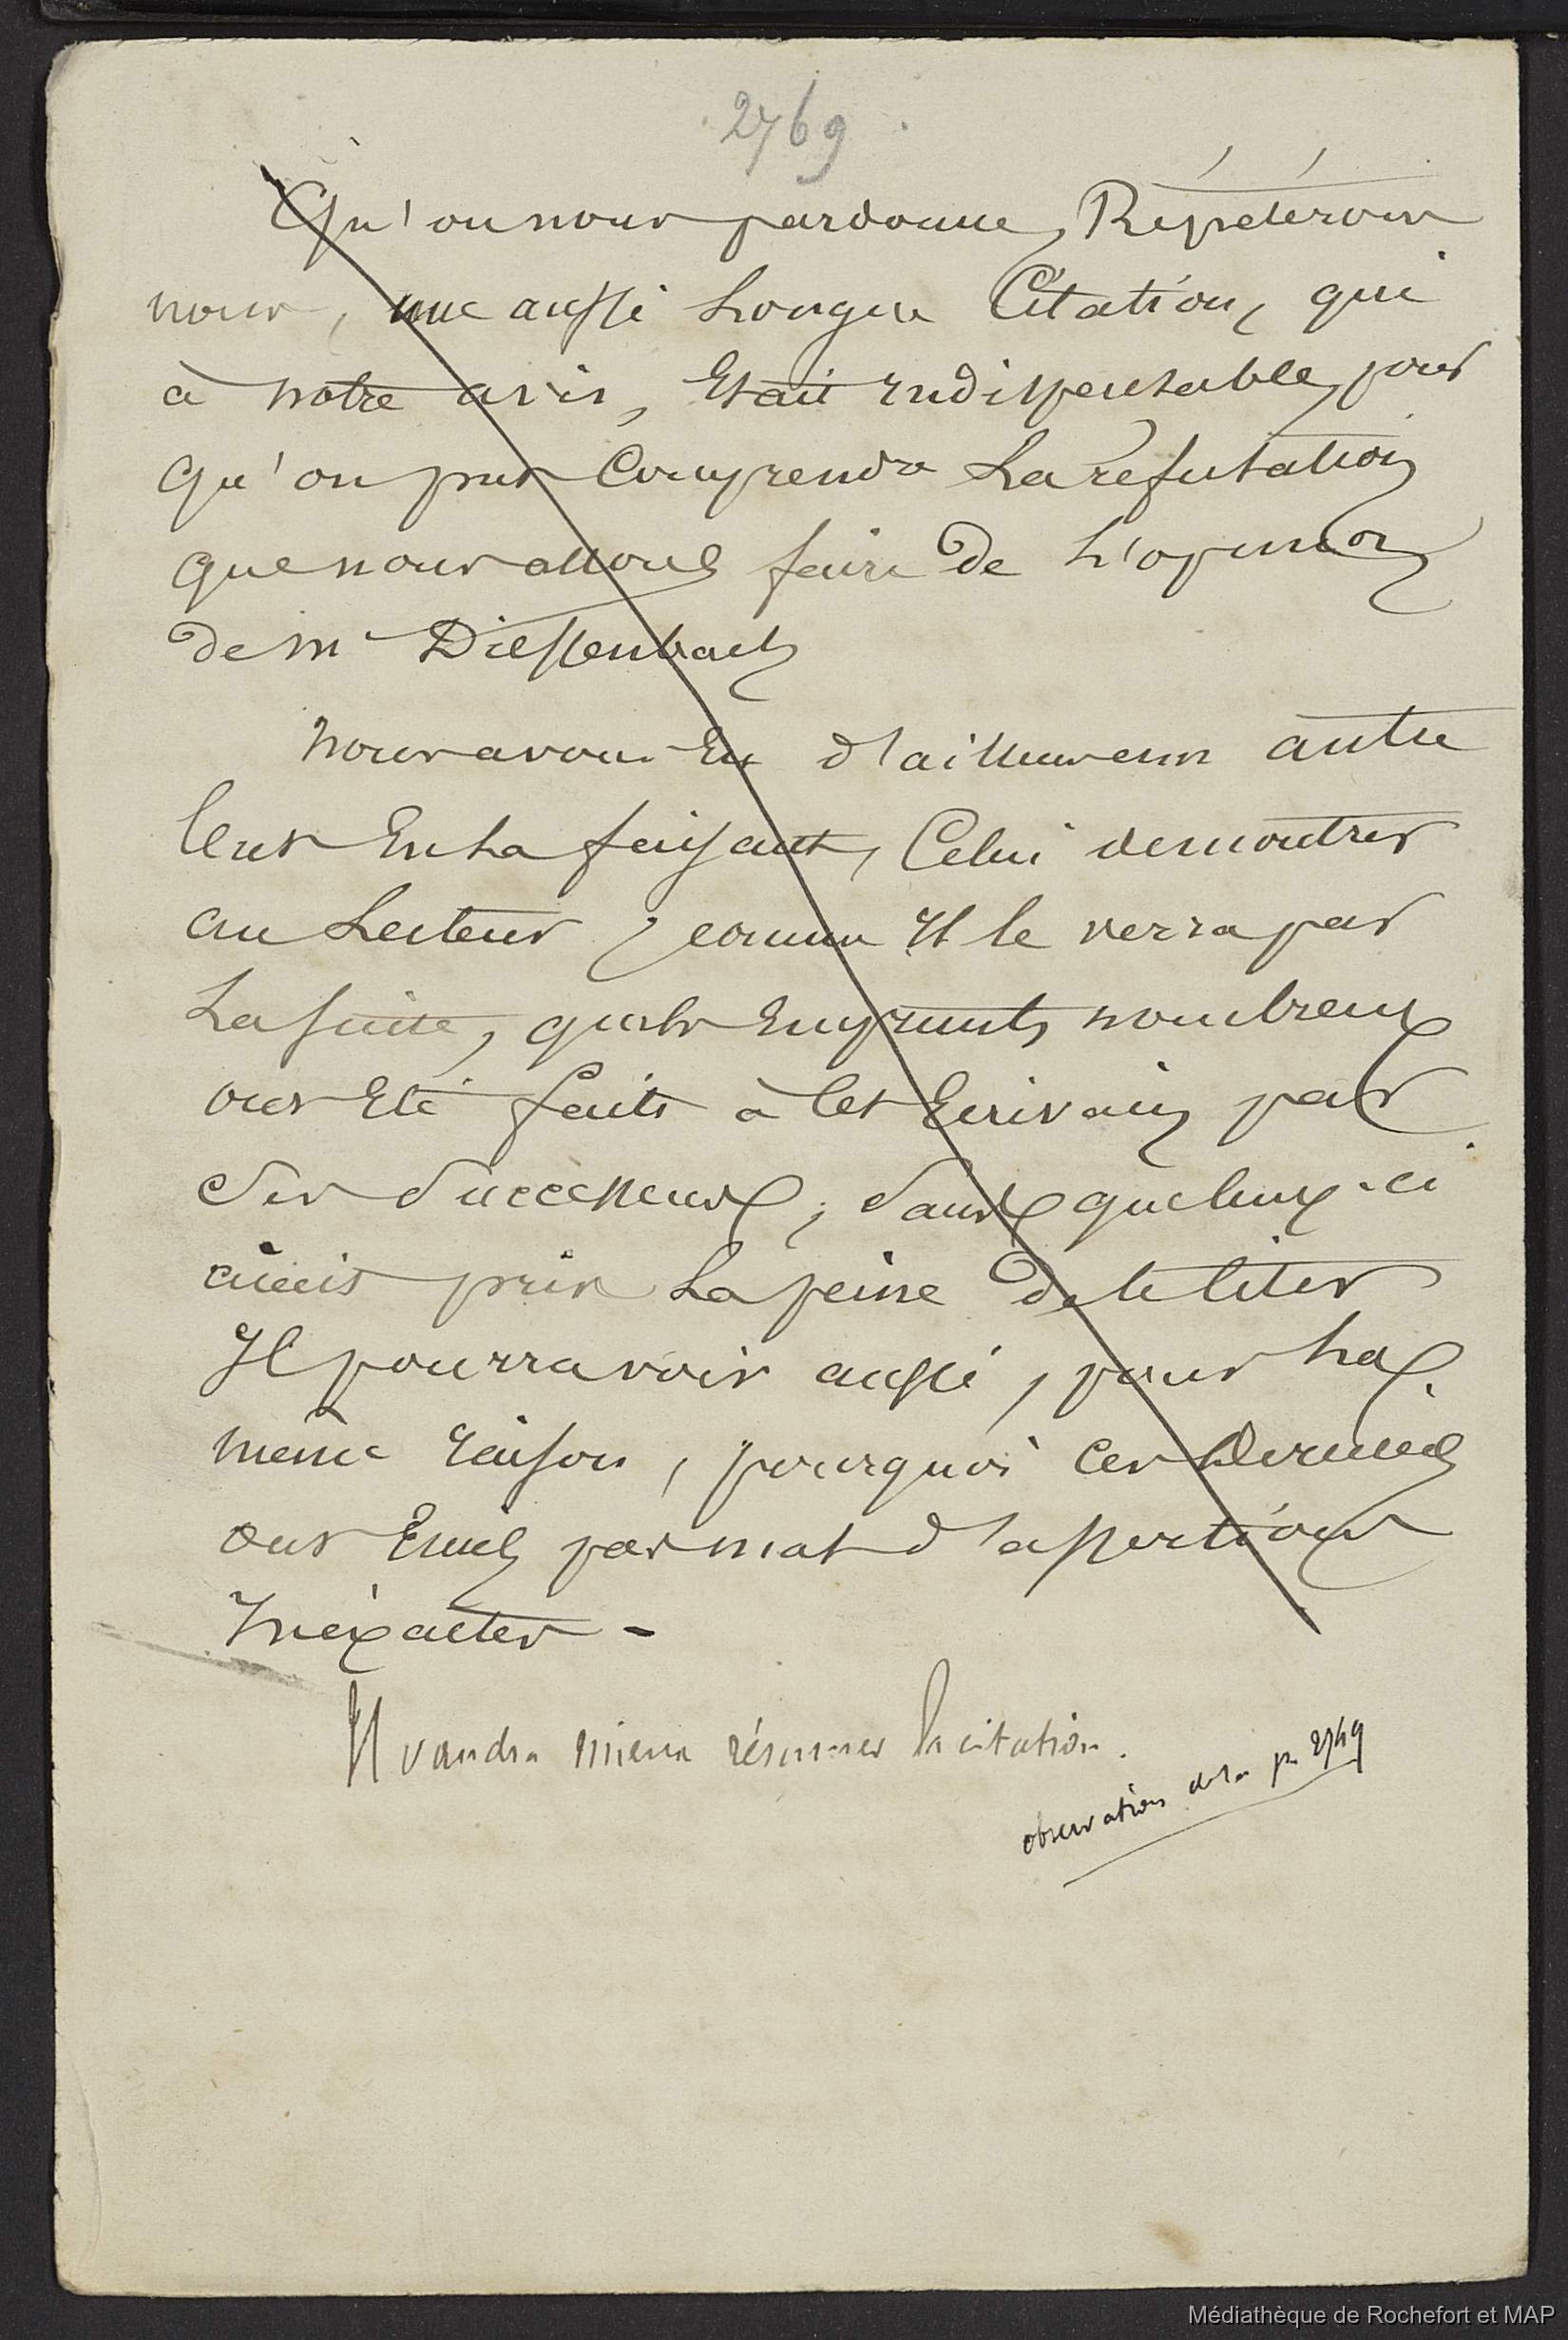 2769
Qu'on nous pardonne, Répéterons
nous, une aussi Longue Citation, qui
à notre avis, Etait Indispensable, pour
qu'on put Comprendre La réfutation
que nous allons faire de L'opinion
de Mr Dieffenbach
Nous avons Eu d'ailleurs un autre
but En La faisant, Celui de montrer
au Lecteur, comme Il le verra par
La suite, que les Emprunts nombreux
ont Eté faits à cet Ecrivain par
Ses Successeurs, Sans que ceux-ci
aient pris La peine de le citer
Il pourra voir aussi, pour La
même raison, pourquoi Ces Derniers
ont Emis pas mal d'assertions
Inéxactes -
Il vaudra mieux résumer la citation.
observations de la p. 2749
Médiathèque de Rochefort et MAP